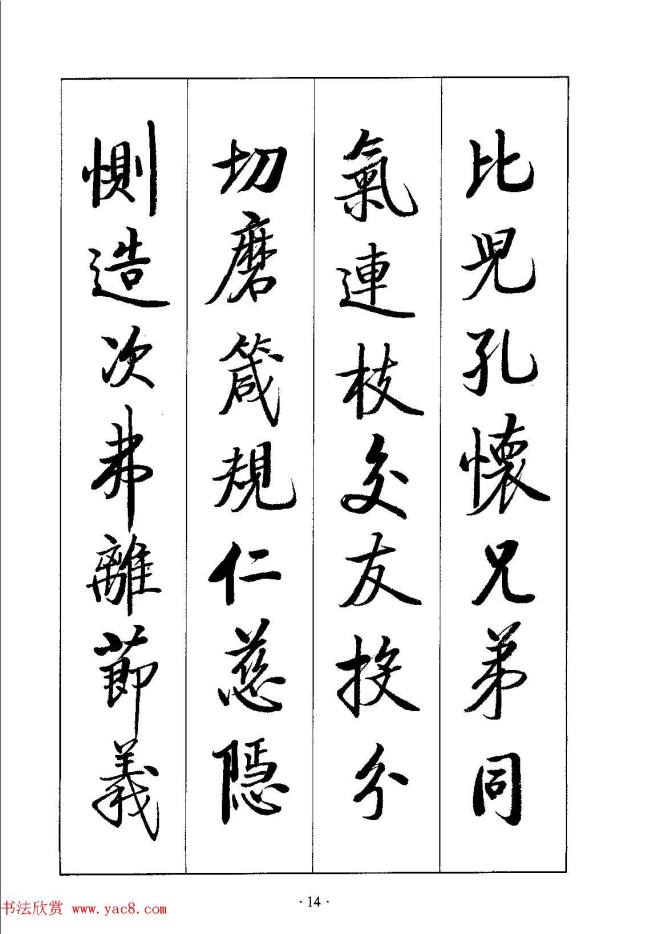 比兒孔懷兄弟同
氣連枝交友投分
切磨箴規仁慈隱
惻造次弗離節義
·14·
书法欣赏 www.yac8.com